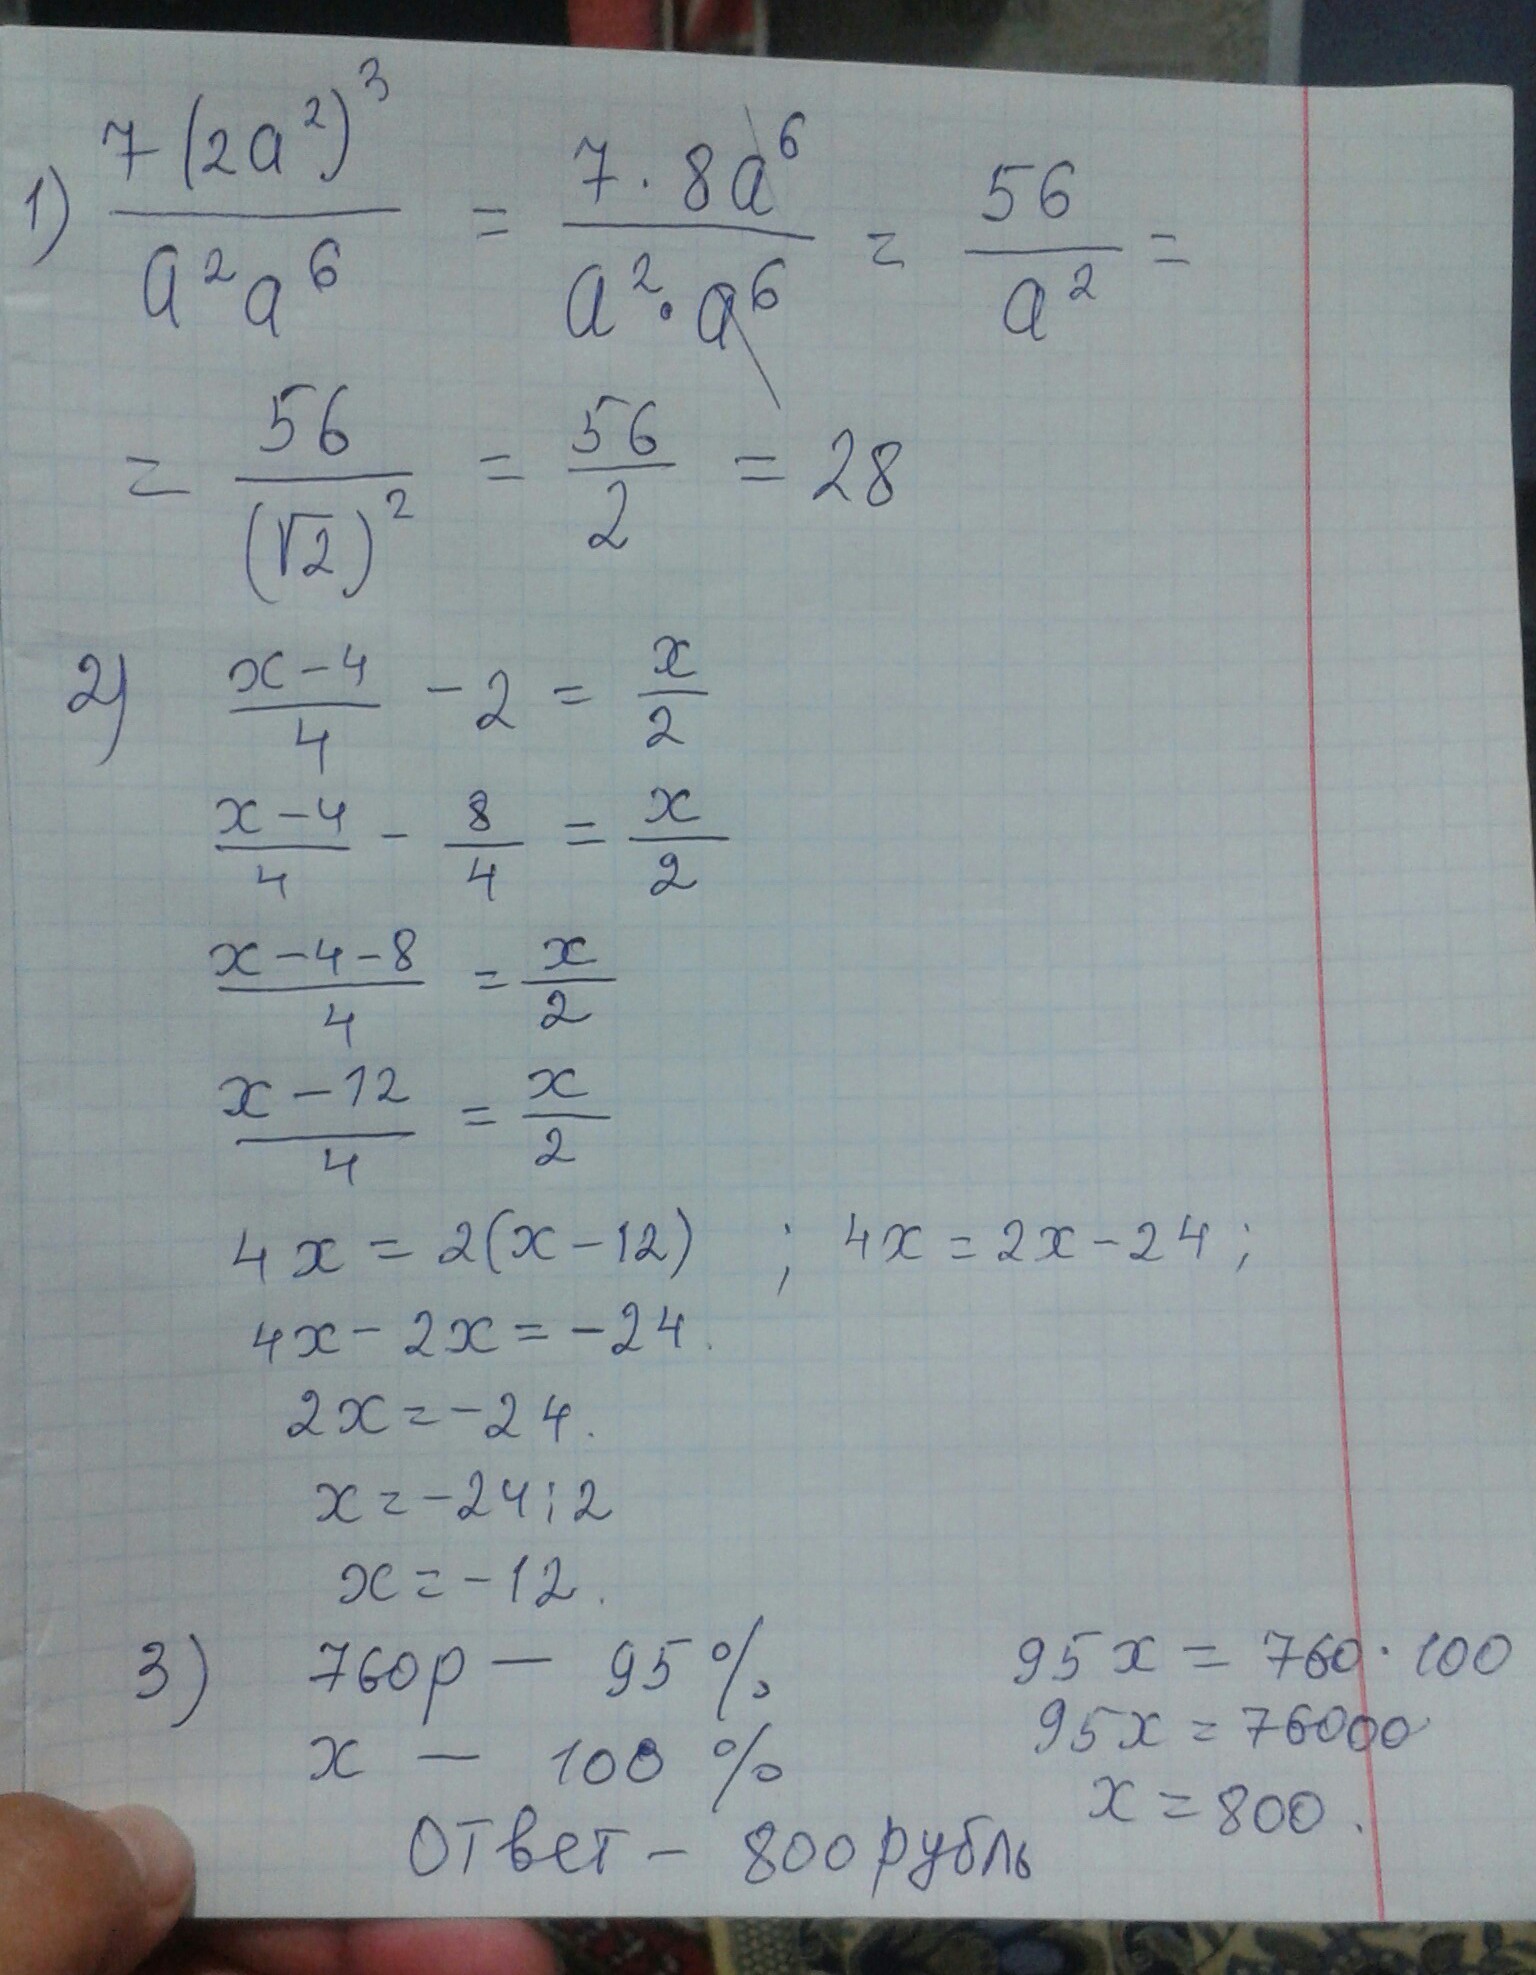 1) 7(2a²)³/a²a⁶ = 7·8a⁶/a²·a⁶ = 56/a² =
= 56/(√2)² = 56/2 = 28
2) x-4/4 - 2 = x/2
x-4/4 - 8/4 = x/2
x-4-8/4 = x/2
x-12/4 = x/2
4x = 2(x-12) ; 4x = 2x-24;
4x - 2x = -24.
2x = -24.
x = -24:2
x = -12.
3) 760р — 95% 95x = 760·100
x — 100% 95x = 76000
x = 800.
Ответ - 800 рубль